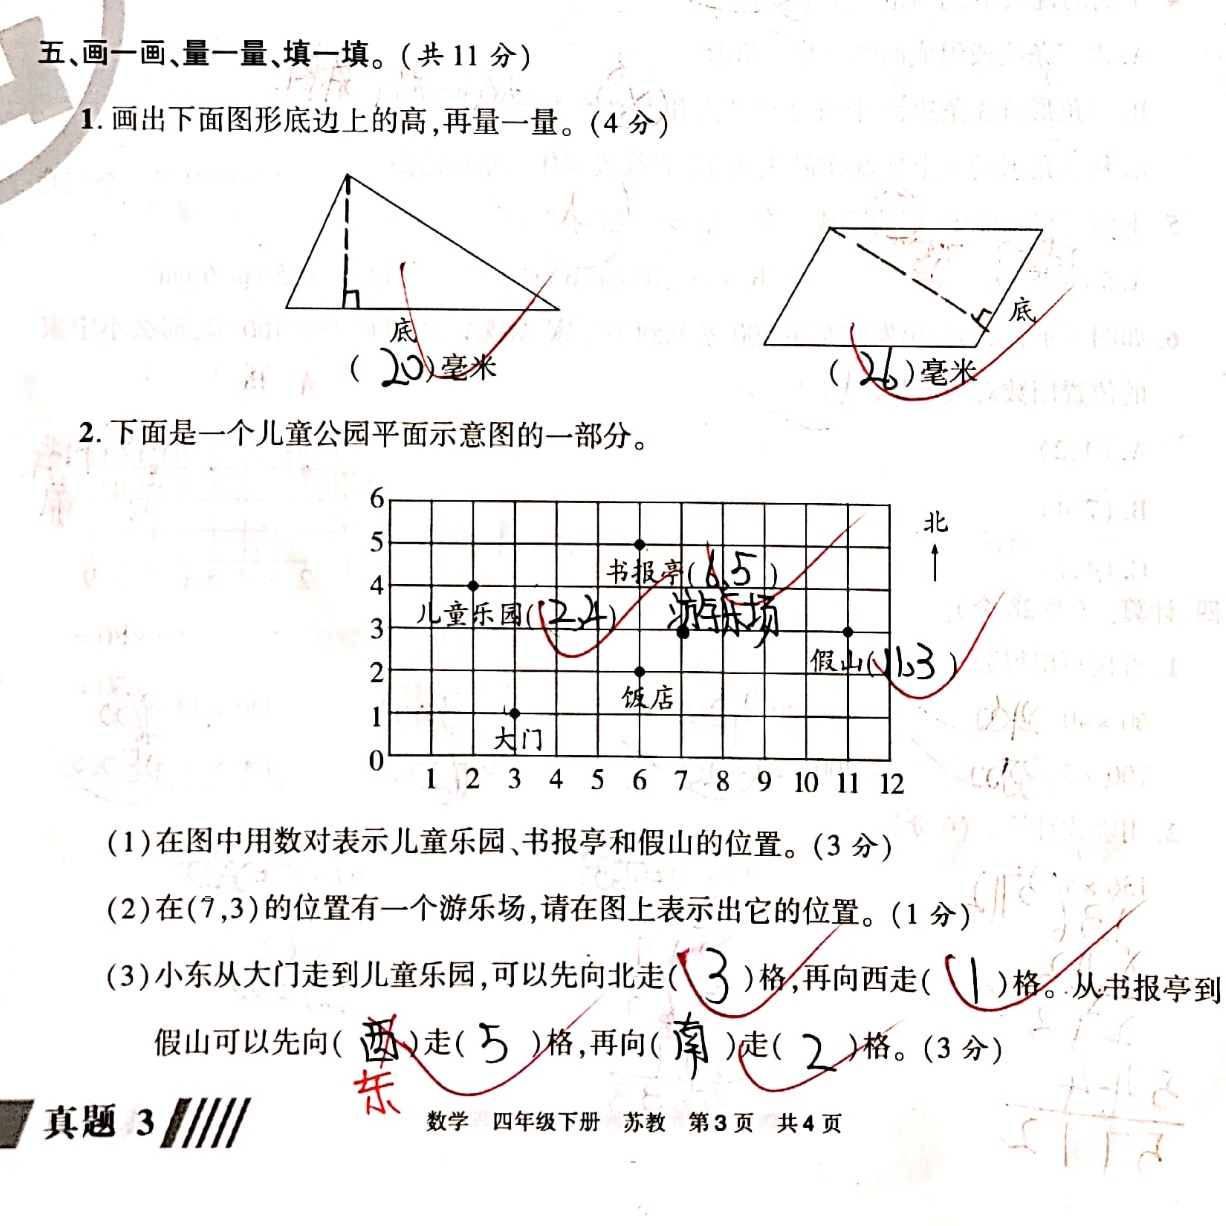 五、画一画、量一量、填一填。(共 11 分)
1. 画出下面图形底边上的高,再量一量。(4 分)
底
底
( 20 )毫米
( 26 )毫米
2. 下面是一个儿童公园平面示意图的一部分。
6
5
4
3
2
1
0
北
书报亭( 6,5 )
儿童乐园( 2,4 )
游乐场
假山( 11,3 )
饭店
大门
1 2 3 4 5 6 7 8 9 10 11 12
(1)在图中用数对表示儿童乐园、书报亭和假山的位置。(3 分)
(2)在(7,3)的位置有一个游乐场,请在图上表示出它的位置。(1 分)
(3)小东从大门走到儿童乐园,可以先向北走( 3 )格,再向西走( 1 )格。从书报亭到
假山可以先向( 西 )走( 5 )格,再向( 南 )走( 2 )格。(3 分)
东
真题 3
数学 四年级下册 苏教 第 3 页 共 4 页